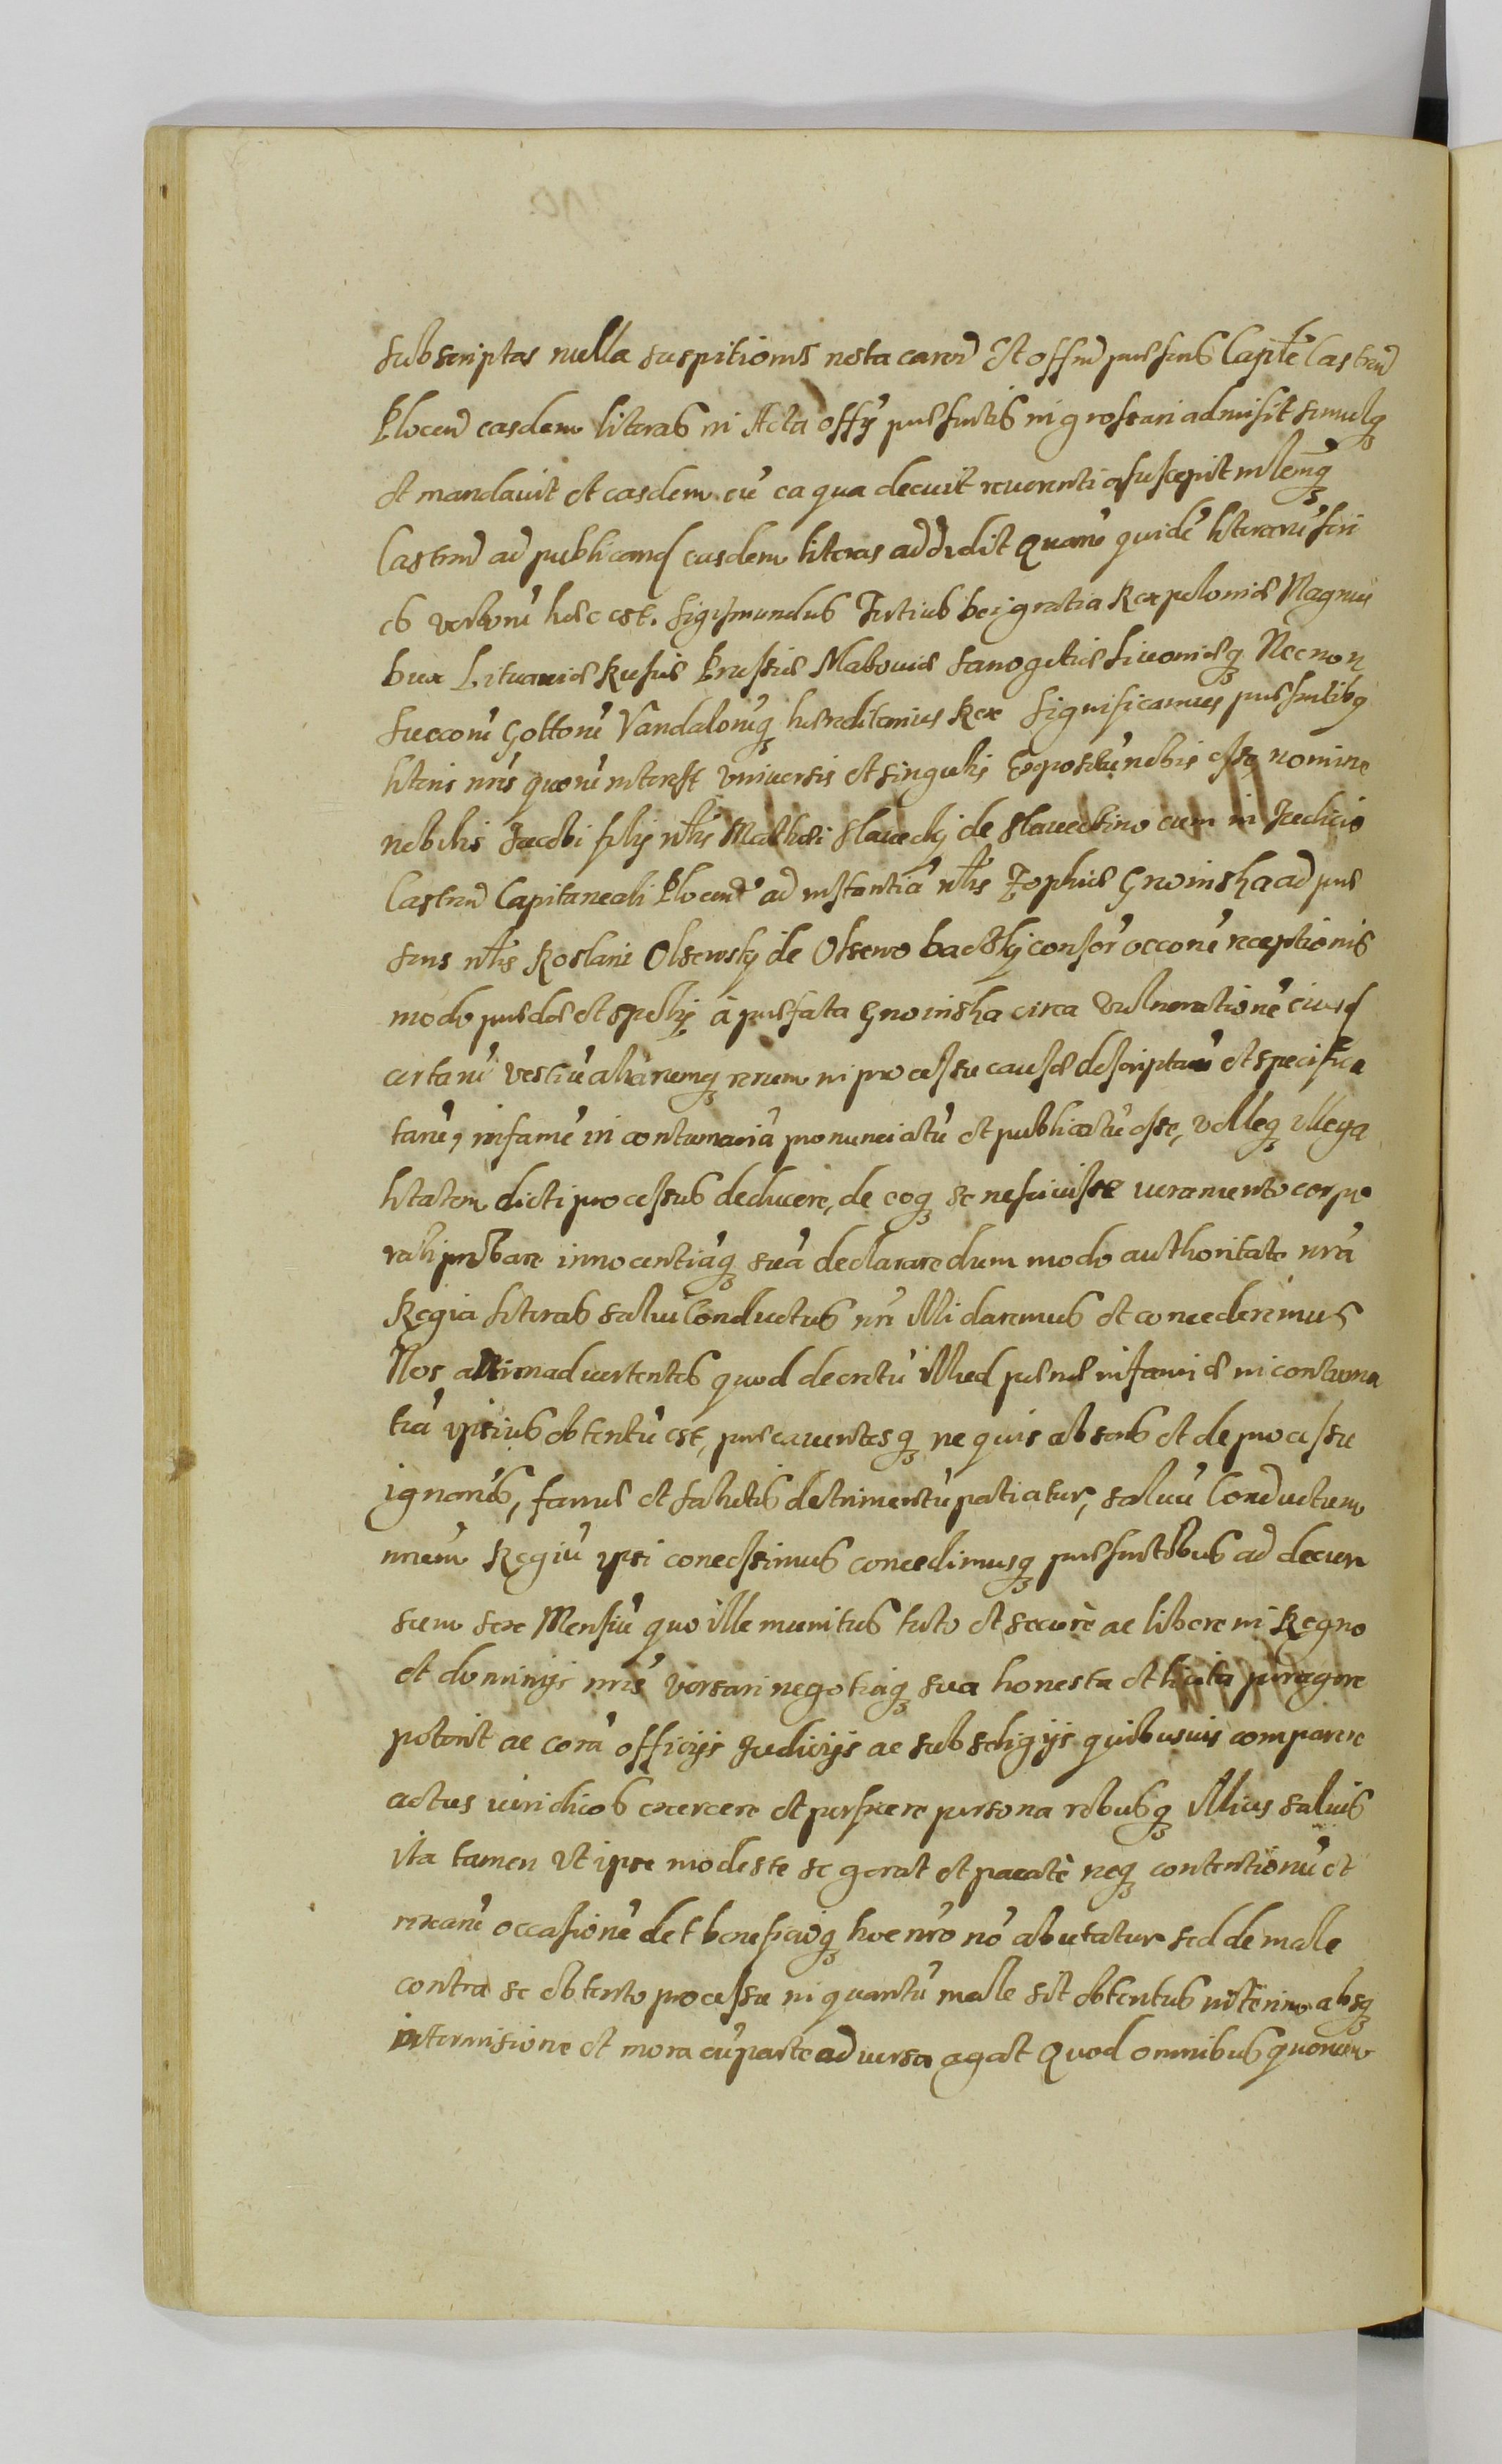 subscriptas nulla suspitionis nota caren̄ Et offm̄ præsens Capitle Castren̄
Plocen̄ easdem literas in Acta offÿ præsentis ingrossari admisit simulq̨
et mandavit et easdem cū ea qua decuit reverentia suscepit mlemq̨
Castren̄ ad publicand easdem literas addidit Quarū quidē literarū seri
es verborū hæc est. Sigismundus Tertius Dei gratia Rex poloniæ Magnus
Dux Lituaniæ Russiæ Prussiæ Masoviæ Samogitiæ Livoniæq̨ Necnon
Suecorū Gottorū Vandalorūq̨ hæreditarius Rex Significamus præsentibq
literis nris quorū interest vniversis et singulis Expositū nobis esse nomine
nobilis Jacobi filij nlis Mathæi Slavecky de Slaveckino cum in Judicio
Castren̄ Capitaneali Plocen̄ ad instantiā nlis Zophiæ Gnoinska ad præ
sens nlis Roslani Olsewsky de Olsewo consor occonē receptionis
modo præda et spolij à præfata Gnoinska circa vulnerationē eiusd
certarū vestiū aliarumq̨ rerum in processu causæ descriptarū et specifica
tarū, infamē in contumaciā pronunciatū et publicatū esse, velleq̨ illega
litatem dicti processus deducere, de eoq̨ se nescivisse iuramento corpo
rali probare innocentiāq̨ suā declarare dum modo authoritate nrā
Regia literas salui Conductus nri illi daremus et concederemus
Nos animadvertentes quod decretū illud pænæ infamiæ in contuma
tiā ipsius obtentū est, præcaventesq̨ ne quis absens et de processu
ignarus, famæ et salutis detrimentū patiatur, salvū Conductum
nrum Regiū ipsi concessimus concedimusq̨ præsentibus ad decur
sum sex Mensiū quo ille munitus tuto et securè ac libere in Regno
et dominijs nris versari negotiaq̨ sua honesta et licita peragere
poterit ac corā officijs Judicijs ac subselijs quibusvis comparere
actus iuridicos exercere et perficere persona rebusq̨ illius salvis
ita tamen vt ipse modeste se gerat et pacatè neq̨ contentionū et
rixarū occasionē det beneficioq̨ hoc nrō nō abutatur sed de male
contra se obtento processu in quantū male sit obtentus interim absq̨
intermisione et mora cū parte adversa agat Quod omnibus quorum